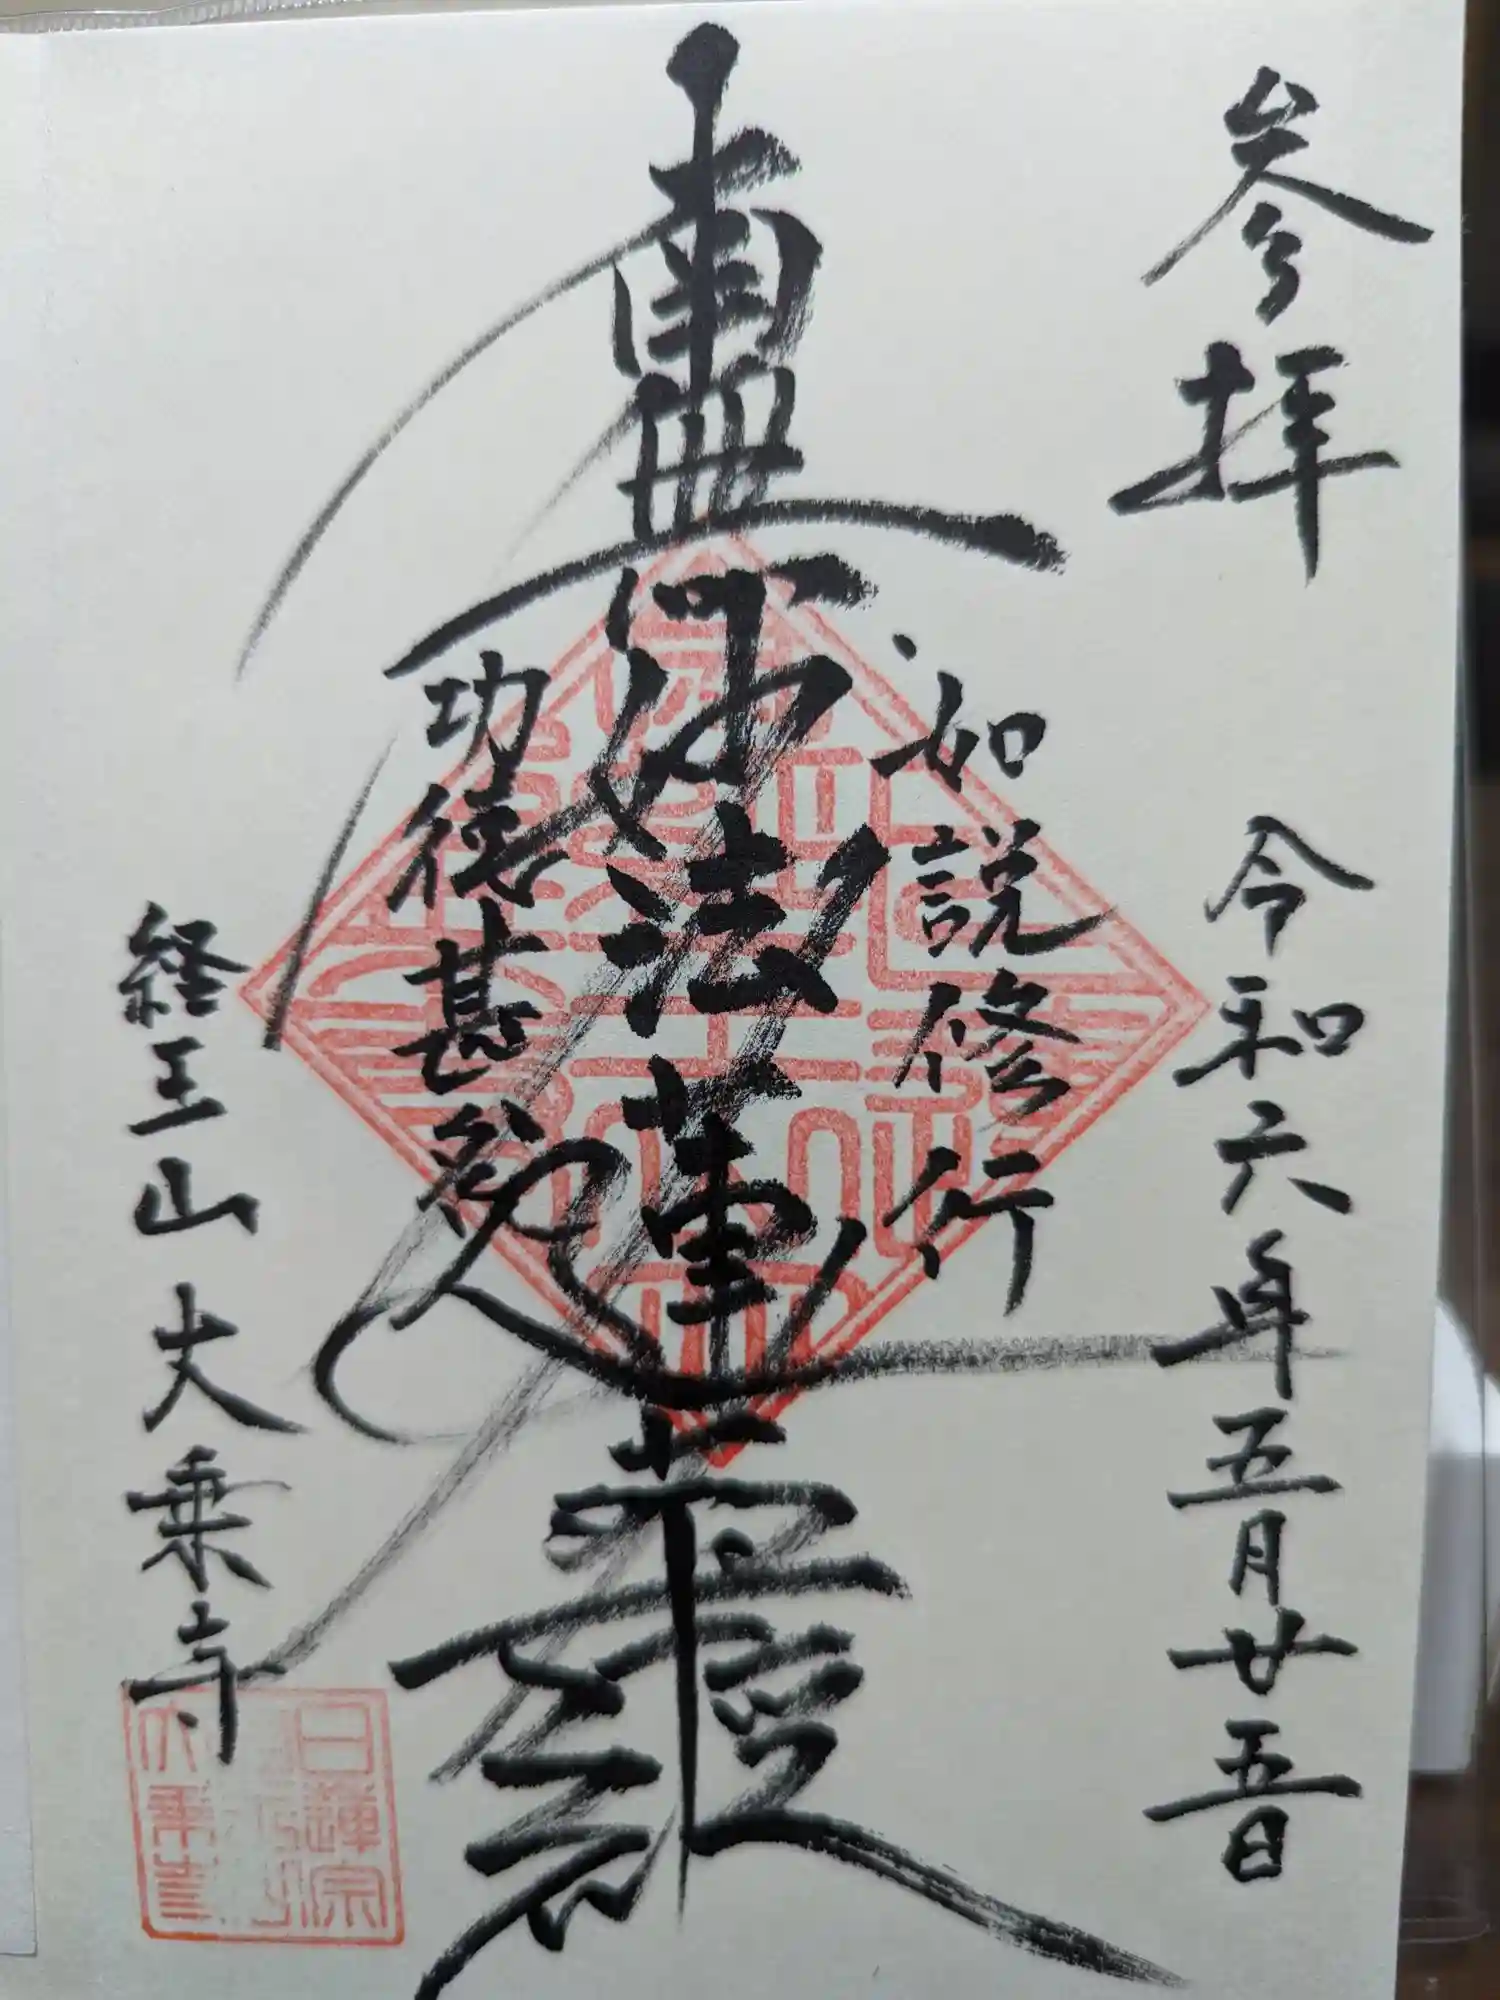 参拝 令和六年五月廿五日
如説修行
南無妙法蓮華経
功徳甚多
経王山 大乗寺
日蓮宗
大乗寺